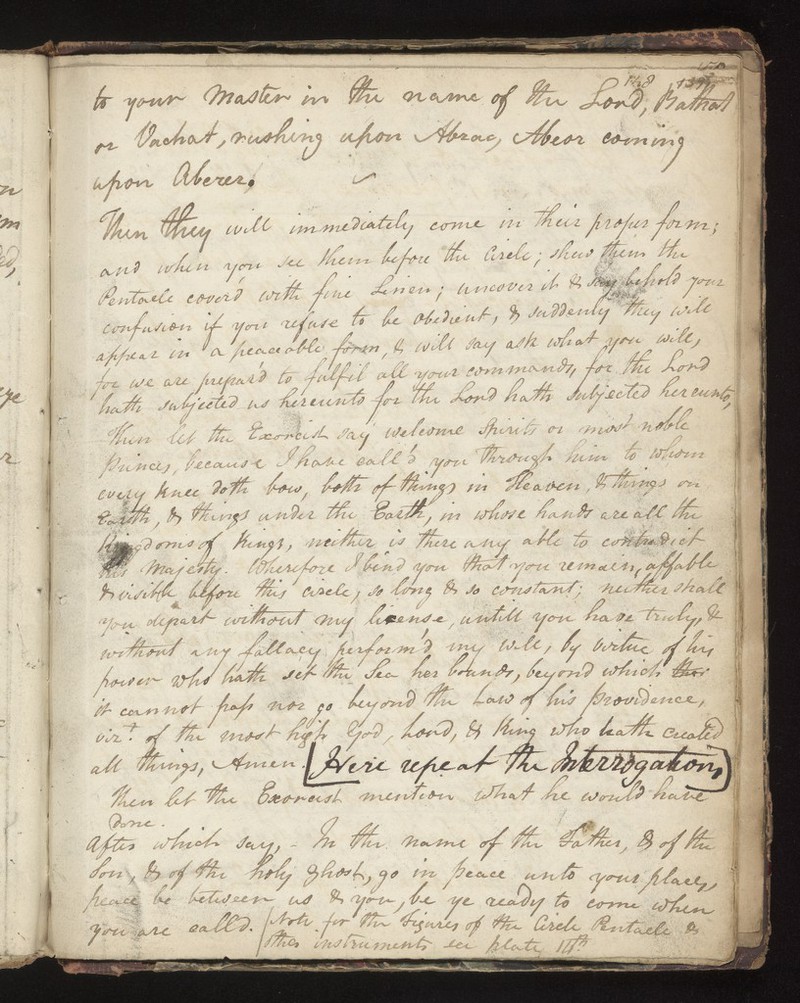 148 139
to your Master in the name of the Lord, Bathat
or Vachat, rushing upon Abrac, Abeor coming
upon Aberer.
Then they will immediately come in their proper form;
and when you see them before the Circle; shew them the
Pentacle cover'd with fine Linen; uncover it & say behold your
confusion if you refuse to be obedient, & suddenly they will
appear in a peaceable form, & will say ask what you will,
for we are prepar'd to fulfil all your commands, for the Lord
hath subjected us hereunto for the Lord hath subjected hereunto,
Then let the Exorcist say welcome Spirits or most noble
Princes, because I have call'd you through him to whom
every knee doth bow, both of things in Heaven, & things on
Earth, & things under the Earth, in whose hands are all the
Kingdoms of Kings, neither is there any able to contradict
his Majesty. Wherefore I bind you that you remain, affable
& visible before this circle, so long & so constant; neither shall
you depart without my license, untill you have truly, &
without any fallacy perform'd my will, by virtue of his
power who hath set the Sea her bounds, beyond which
it cannot pass nor go beyond the Law of his Providence,
virt. of the most high God, Lord, & King who hath created
all things, Amen. Here repeat the Interrogation,
Then let the Exorcist mention what he would have
done.
After which say, - In the name of the Father, & of the
Son, & of the holy Ghost, go in peace unto your places,
peace be between us & you, be ye ready to come when
you are call'd. Note for the Figures of the Circle Pentacle &
other instruments see plate